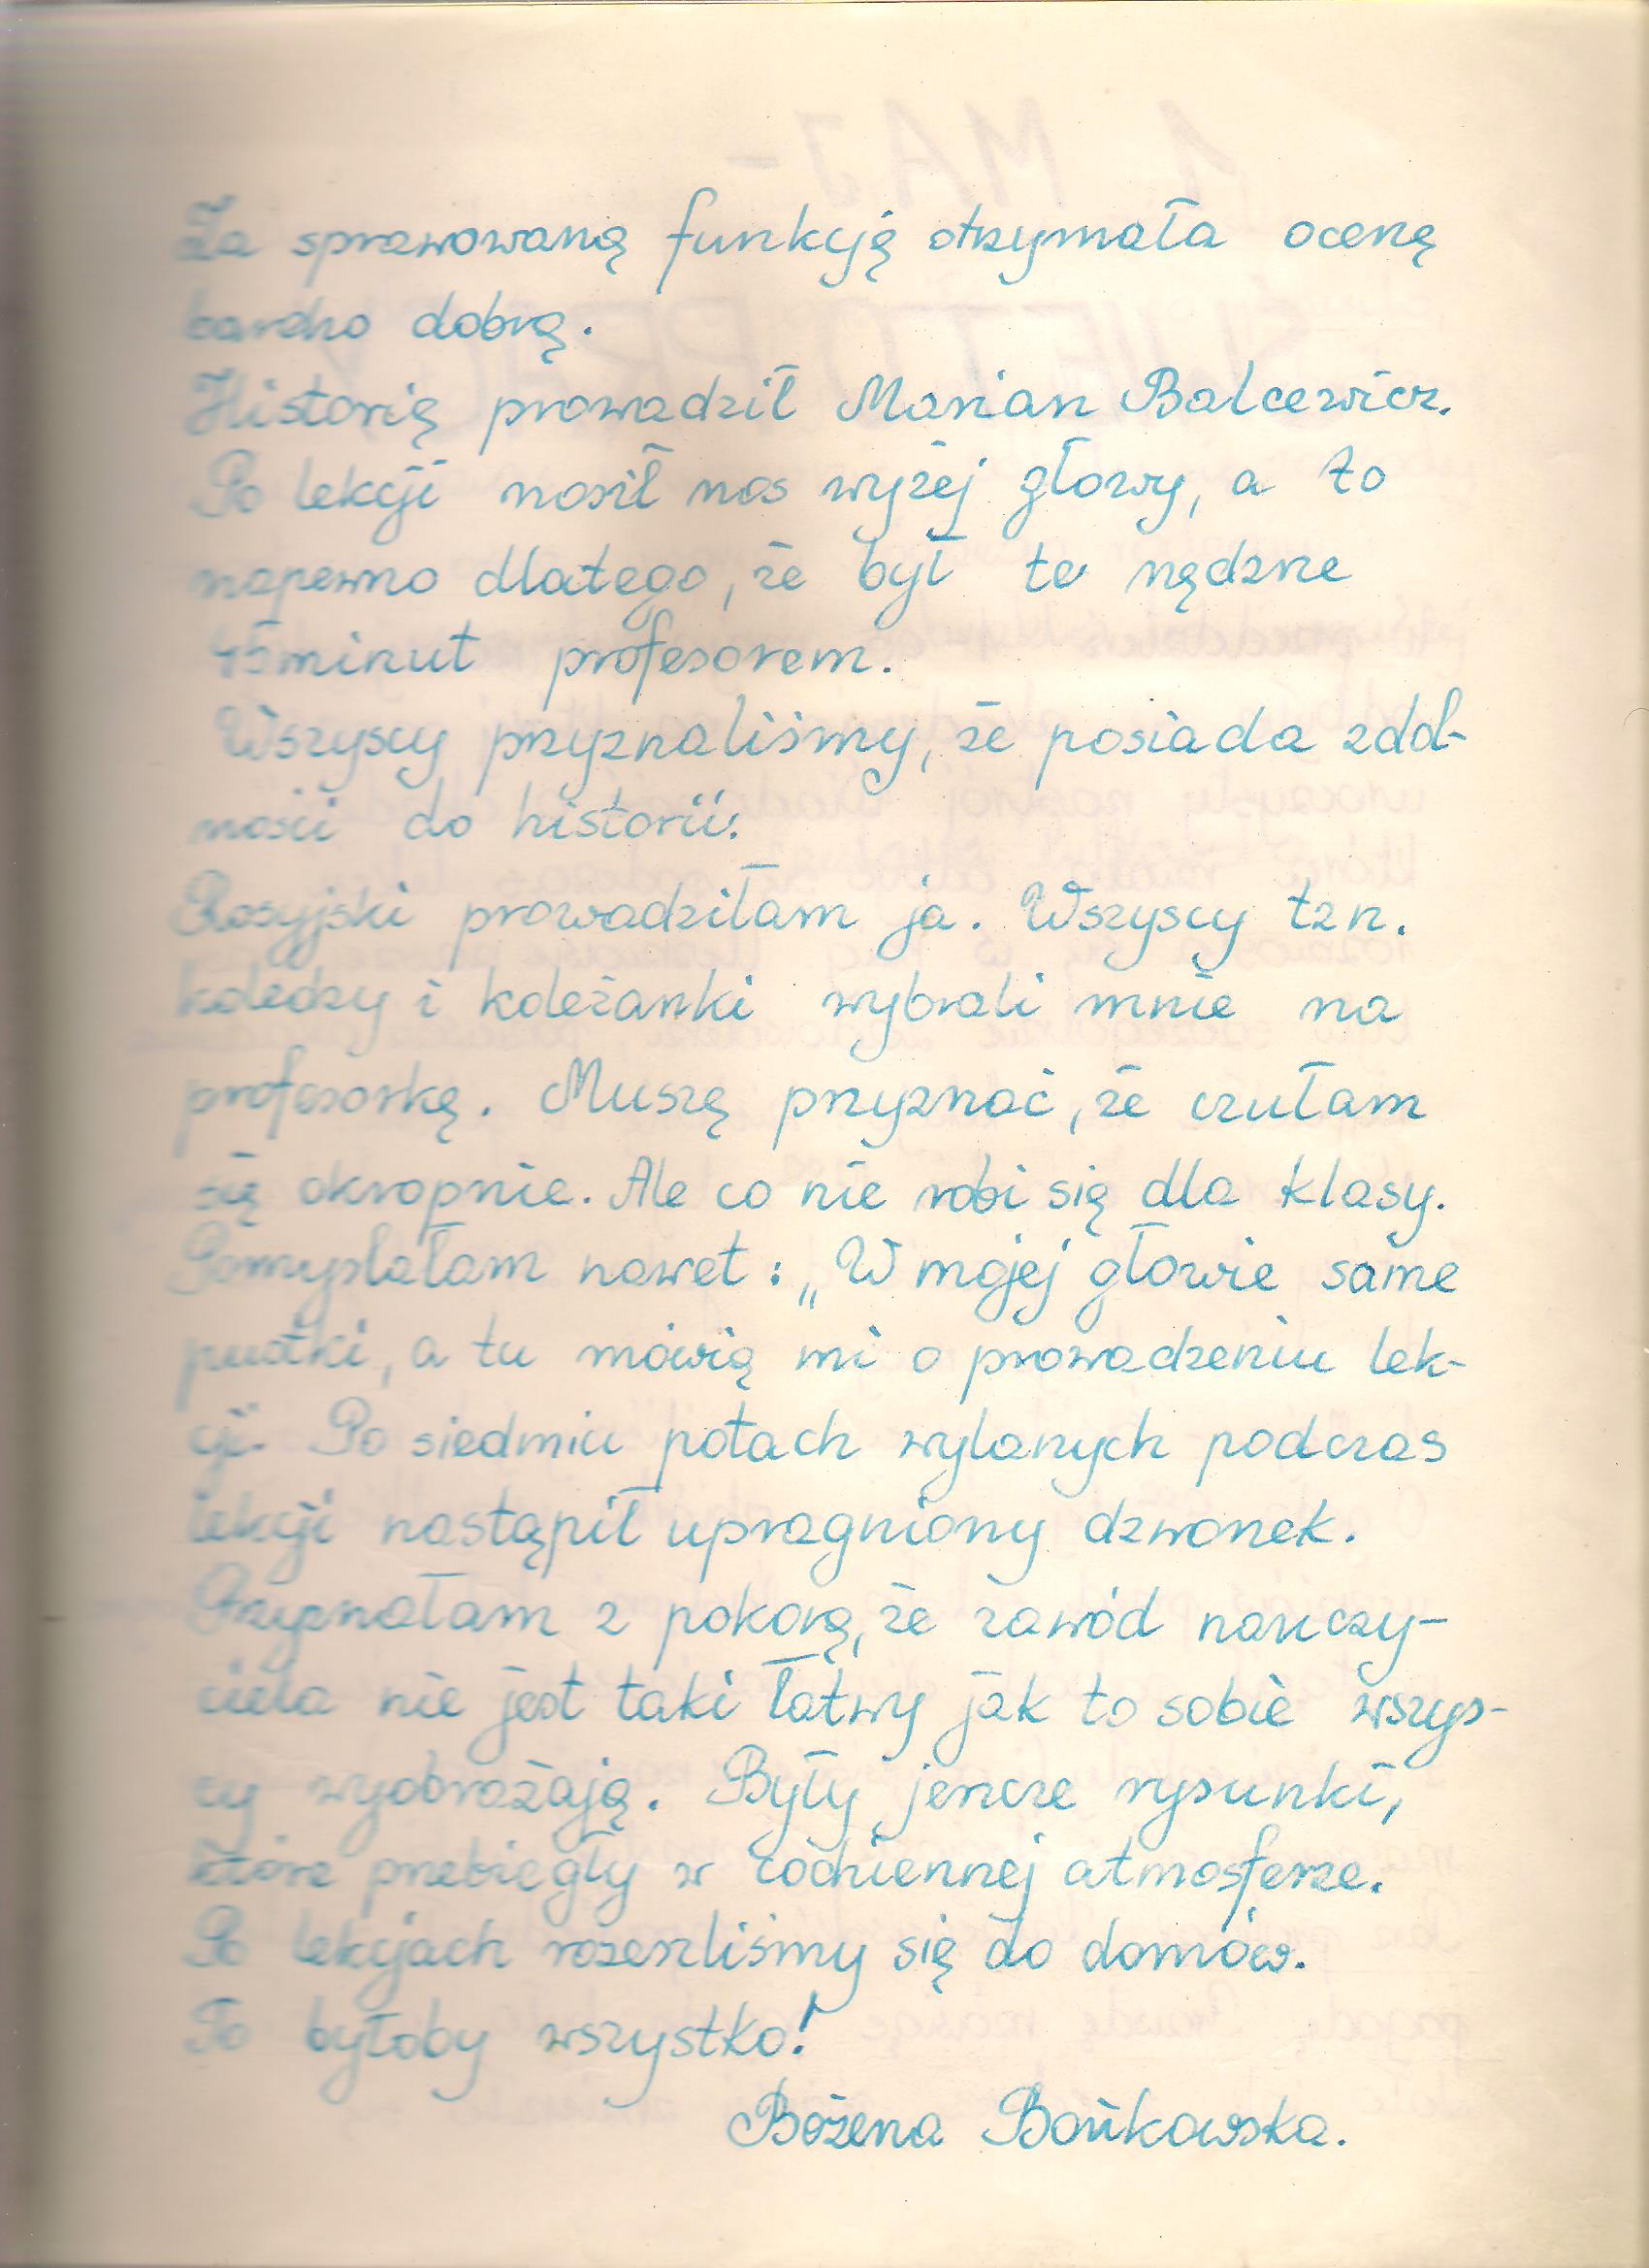 Za sprawowaną funkcję otrzymała ocenę
bardzo dobrą.
Historię prowadził Marian Balcewicz.
Po lekcji nosił nos wyżej głowy, a to
napewno dlatego, że był te nędzne
45 minut profesorem.
Wszyscy przyznaliśmy, że posiada zdol-
ności do historii.
Rosyjski prowadziłam ja. Wszyscy tzn.
koledzy i koleżanki wybrali mnie na
profesorkę. Muszę przyznać, że czułam
się okropnie. Ale co nie robi się dla klasy.
Pomyślałam nawet: „W mojej głowie same
pustki, a tu mówią mi o prowadzeniu lek-
cji. Po siedmiu potach wylanych podczas
lekcji nastąpił upragniony dzwonek.
Przyznałam z pokorą, że zawód nauczy-
ciela nie jest taki łatwy jak to sobie wszys-
cy wyobrażają. Były jeszcze rysunki,
które przebiegły w codziennej atmosferze.
Po lekcjach rozeszliśmy się do domów.
To byłoby wszystko!
Bożena Bańkowska.